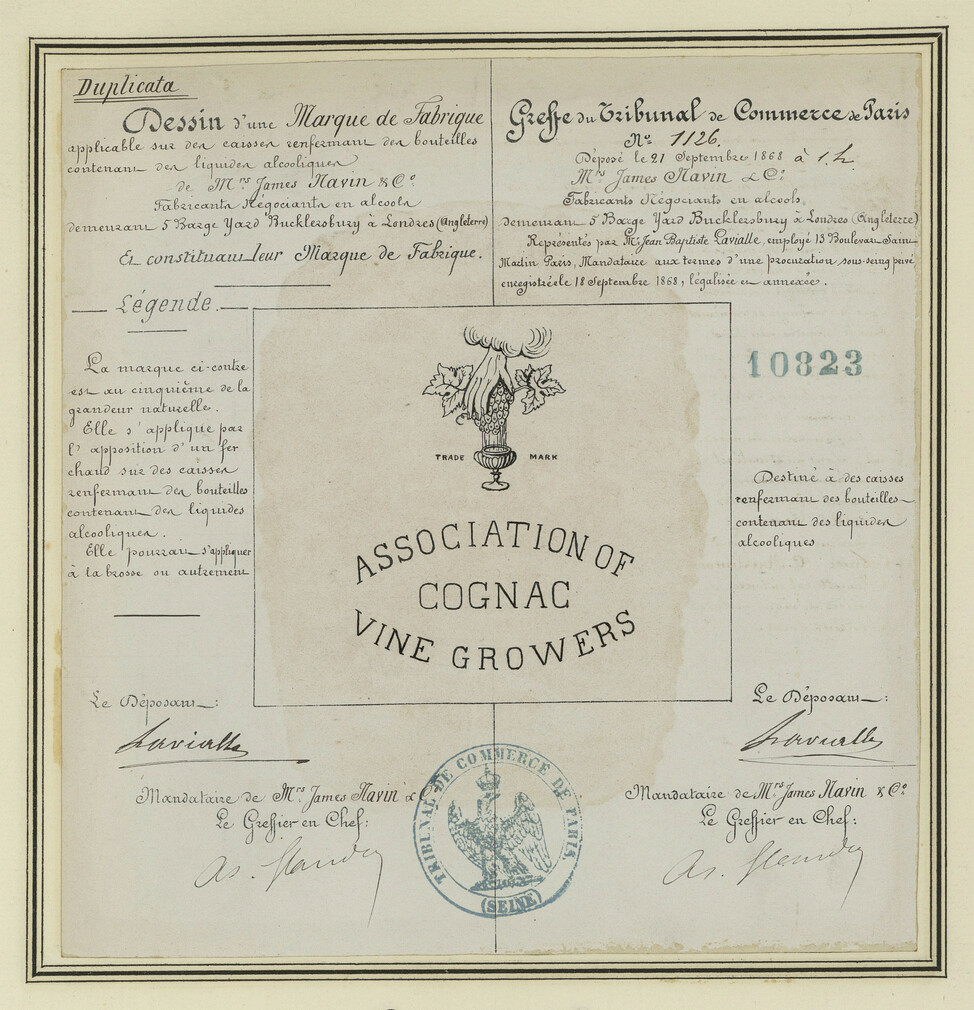 Duplicata
Dessin d'une Marque de Fabrique
applicable sur des caisses renfermant des bouteilles
contenant des liquides alcooliques
de Mrs James Navin & Co
Fabricants Négociants en alcools
demeurant 5 Barge Yard Bucklersbury à Londres (Angleterre)
Et constituant leur Marque de Fabrique.
Légende.
La marque ci-contre
est au cinquième de la
grandeur naturelle.
Elle s'applique par
l'apposition d'un fer
chaud sur des caisses
renfermant des bouteilles
contenant des liquides
alcooliques.
Elle pourrait s'appliquer
à la brosse ou autrement
Greffe du Tribunal de Commerce de Paris
No 1126.
Déposé le 21 Septembre 1868 à 1 h.
Mrs James Navin & Co
Fabricants Négociants en alcools,
demeurant 5 Barge Yard Bucklersbury à Londres (Angleterre)
Représentés par Mr Jean Baptiste Lavialle, employé 13 Boulevart Saint
Martin Paris, Mandataire aux termes d'une procuration sous-seing privé
enregistrée le 18 Septembre 1868, légalisée et annexée.
10823
Destiné à des caisses
renfermant des bouteilles
contenant des liquides
alcooliques
TRADE MARK
ASSOCIATION OF
COGNAC
VINE GROWERS
Le Déposant:
Lavialle
Mandataire de Mrs James Navin & Co
Le Greffier en Chef:
Le Déposant:
Lavialle
Mandataire de Mrs James Navin & Co
Le Greffier en Chef:
TRIBUNAL DE COMMERCE DE PARIS
(SEINE)